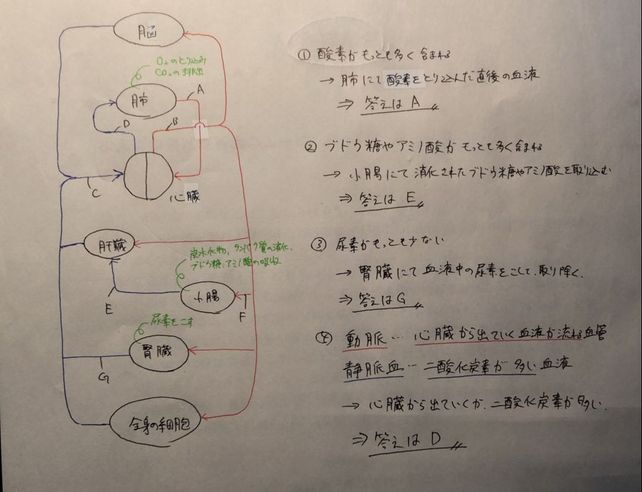 脳
O₂のとり込み
CO₂の排出
肺
A
D
B
心臓
C
肝臓
炭水化物、タンパク質の消化、
ブドウ糖、アミノ酸の吸収
小腸
E
F
尿素をこす
腎臓
G
全身の細胞
① 酸素がもっとも多く含まれる
→ 肺にて酸素をとり込んだ直後の血液
⇒ 答えは A
② ブドウ糖やアミノ酸がもっとも多く含まれる
→ 小腸にて消化されたブドウ糖やアミノ酸を取り込む
⇒ 答えは E
③ 尿素がもっとも少ない
→ 腎臓にて血液中の尿素をこして、取り除く.
⇒ 答えは G
④ 動脈… 心臓から出ていく血液が流れる血管
静脈血… 二酸化炭素が多い血液
→ 心臓から出ていくが、二酸化炭素が多い.
⇒ 答えは D